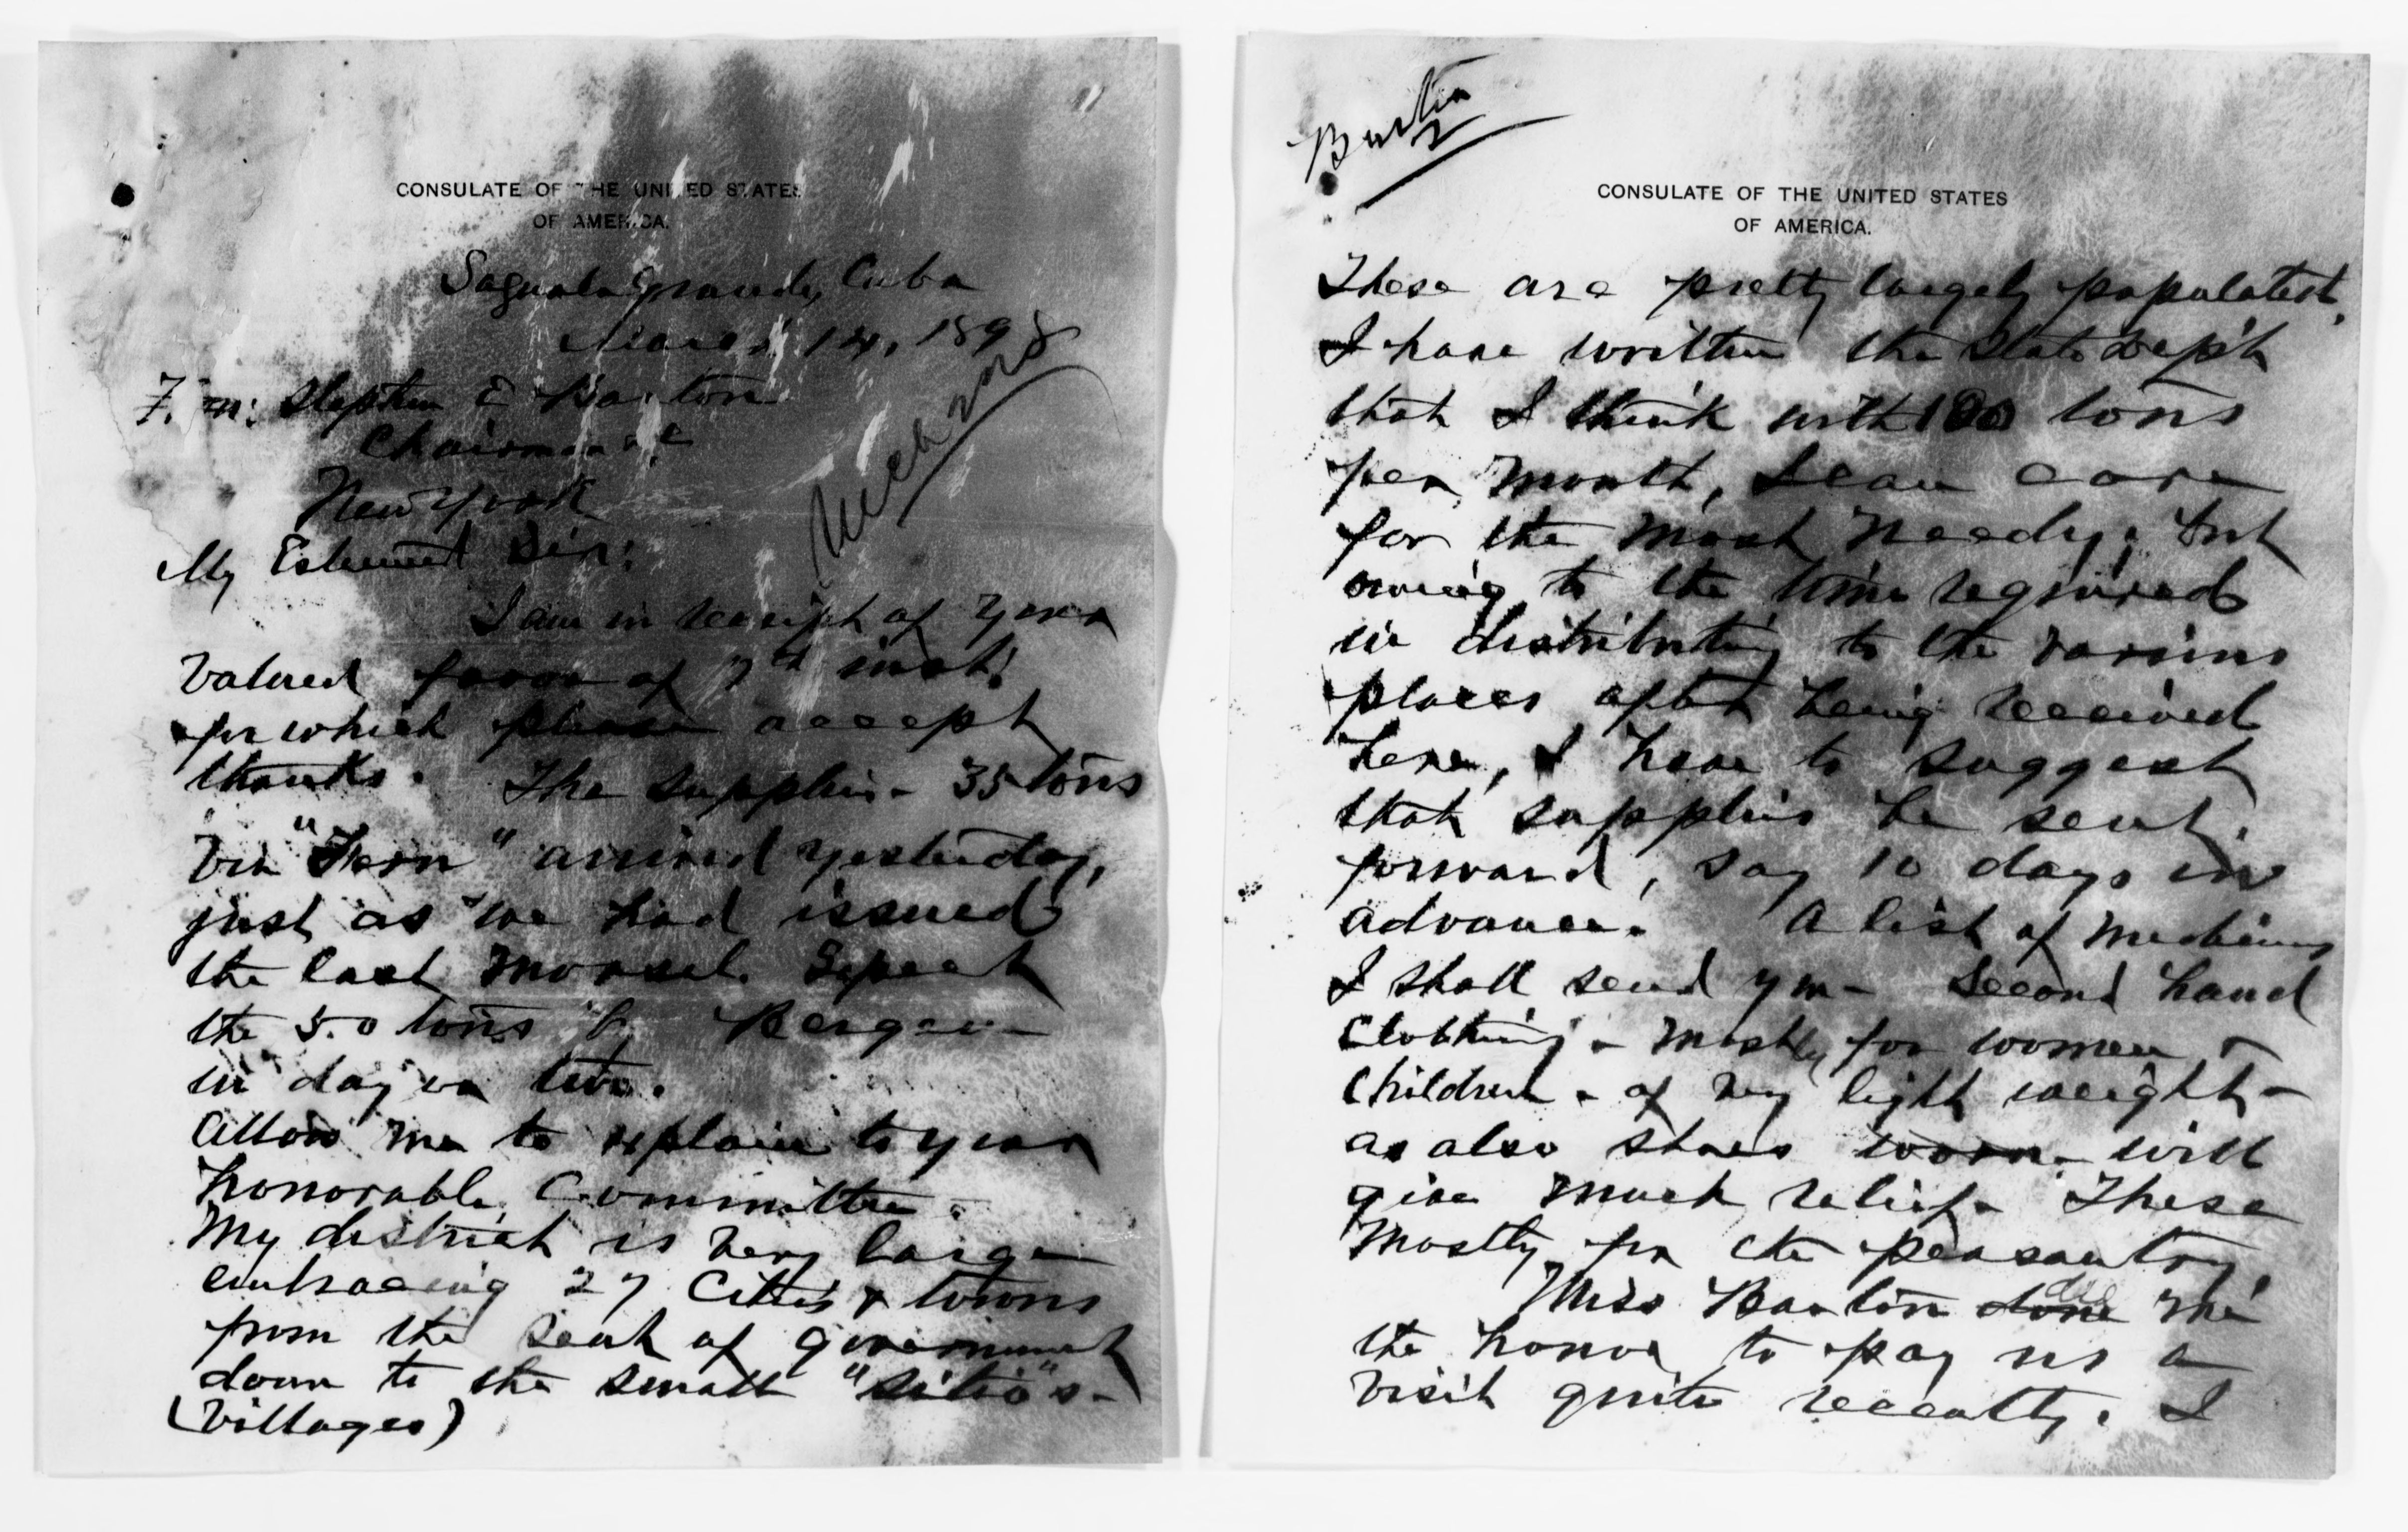 CONSULATE OF THE UNITED STATES
OF AMERICA.
Sagua la Grande, Cuba
March 14, 1898
Stephen E Barton
Chairman &c
New York
My Esteemed Sir:
I am in receipt of your
valued favor of 7th inst:
for which please accept
thanks. The supplies - 35 tons
via "Fern" arrived yesterday,
just as we had issued
the last morsel. Expect
the 50 tons Bergen
in day or two.
Allow me to explain to your
honorable Committee.
My district is very large
embracing 27 Cities & towns
from the seat of government
down to the small "sitio"s-
(villages)
Barton
2
CONSULATE OF THE UNITED STATES
OF AMERICA.
These are pretty largely populated.
I have written the State Dep't
that I think with tons
per month, I can care
for the most needy; but
owing to the time required
in distributing to the various
places after being received
here, I have to suggest
that supplies be sent
forward, say 10 days in
advance. A list of medicines
I shall send you - Second hand
Clothing - mostly for women &
Children - of very light weight -
as also shoes worn - will
give much relief. These
mostly for the peasantry.
Miss Barton done did me
the honor to pay us a
visit quite recently. I